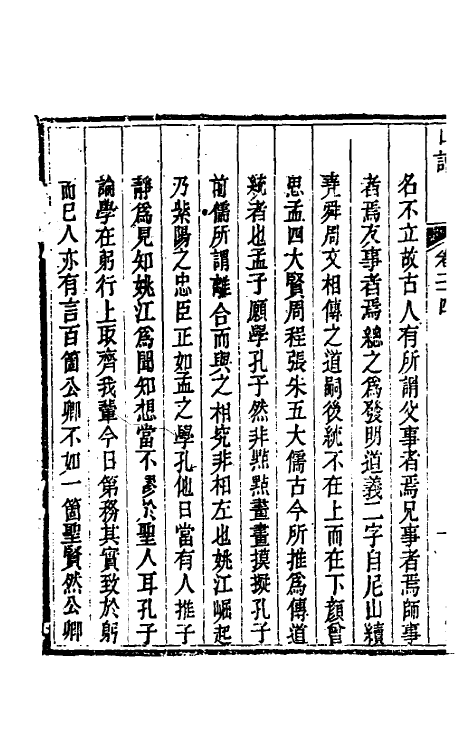 卷二十四
名不立故古人有所謂父事者焉兄事者焉師事
者焉友事者焉總之為發明道義二字自尼山續
堯舜周文相傳之道嗣後統不在上而在下顏曾
思孟四大賢周程張朱五大儒古今所推為傳道
統者也孟子願學孔子然非點點畫畫摸擬孔子
前儒所謂離合而與之相究非相左也姚江崛起
乃紫陽之忠臣正如孟之學孔他日當有人推子
靜為見知姚江為聞知想當不謬於聖人耳孔子
論學在躬行上取齊我輩今日第務其實致於躬
而已人亦有言百箇公卿不如一箇聖賢然公卿